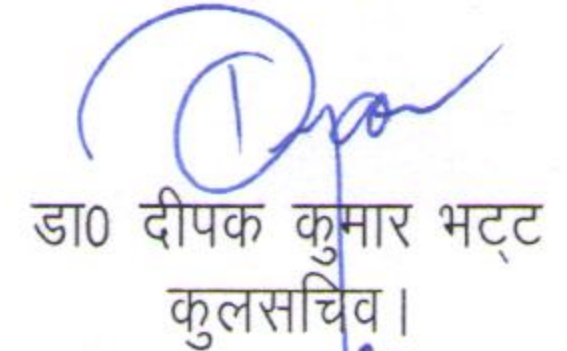 डा0 दीपक कुमार भट्ट
कुलसचिव।